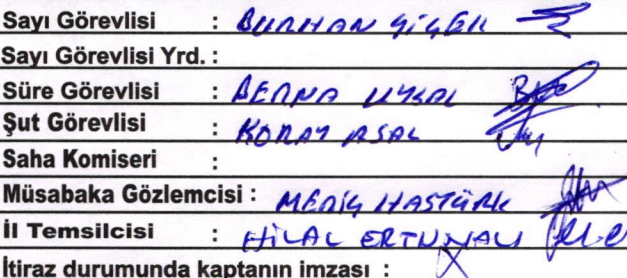 Sayı Görevlisi : BURHAN ÇİÇEK
Sayı Görevlisi Yrd. :
Süre Görevlisi : BERNA UYSAL
Şut Görevlisi : KORAY ASAL
Saha Komiseri :
Müsabaka Gözlemcisi : MERİÇ HASTÜRK
İl Temsilcisi : HİLAL ERTUNALI
İtiraz durumunda kaptanın imzası :